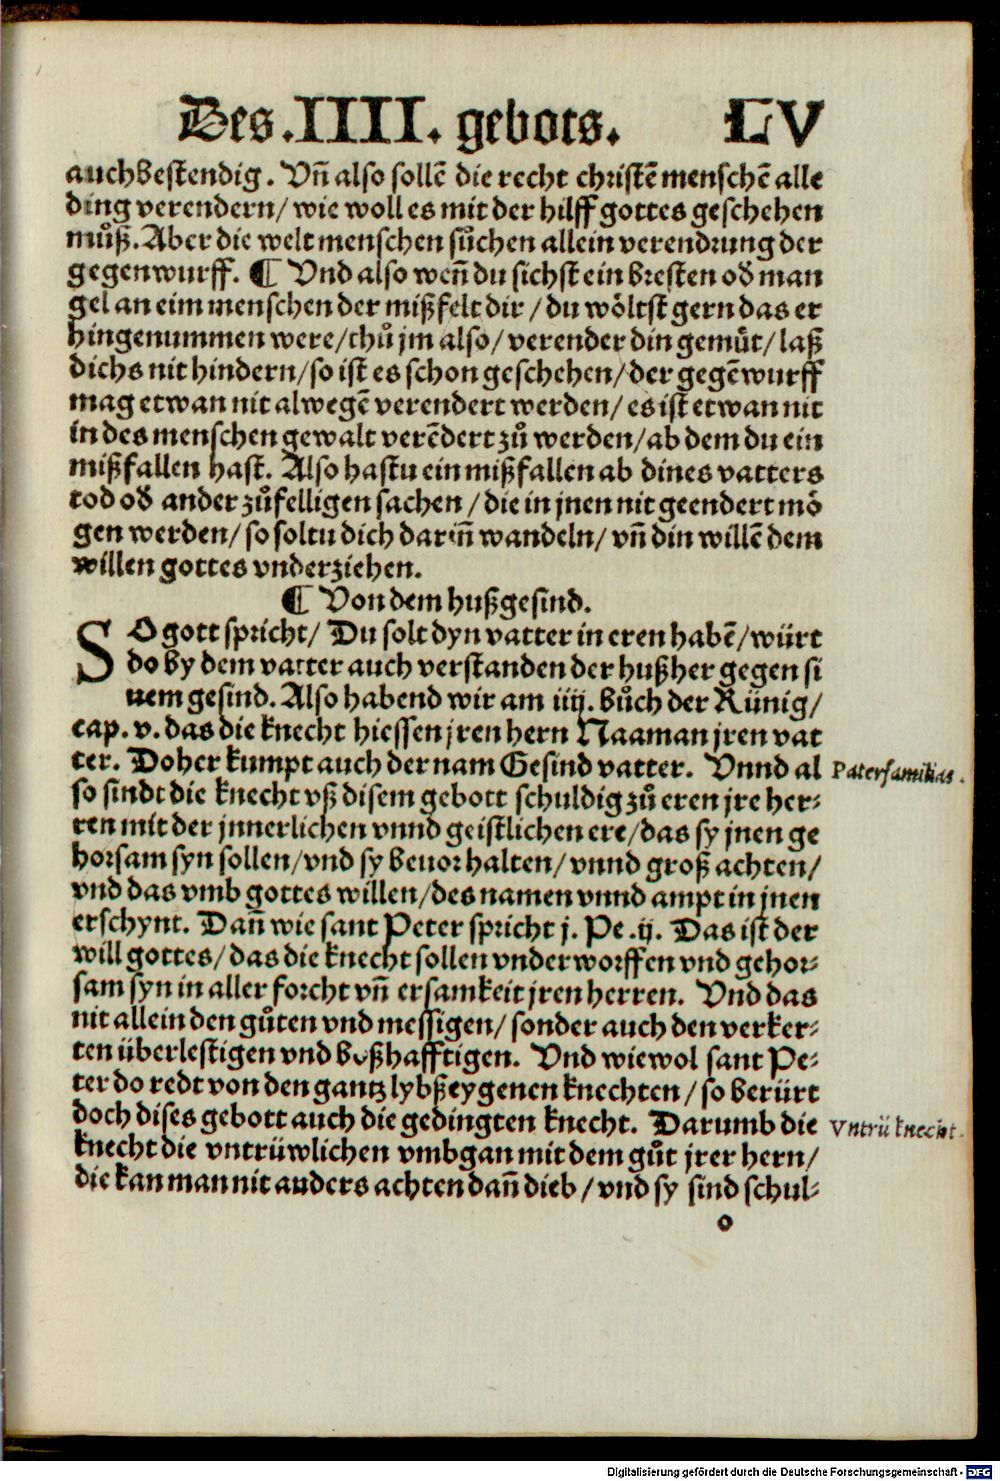 Des .IIII. gebots. LV
auch bestendig. Vñ also sollē die recht christē menschē alle
ding verendern/ wie woll es mit der hilff gottes geschehen
můß. Aber die welt menschen sůchen allein verendrung der
gegenwurff. ¶ Vnd also weñ du sichst ein bresten od̉ man
gel an eim menschen der mißfelt dir / du wöltst gern das er
hingenummen were/ thů jm also/ verender din gemüt/ laß
dichs nit hindern/ so ist es schon geschehen/ der gegēwurff
mag etwan nit alwegē verendert werden/ es ist etwan nit
in des menschen gewalt verēdert zů werden/ ab dem du ein
mißfallen hast. Also hastu ein mißfallen ab dines vatters
tod od̉ ander zůfelligen sachen / die in jnen nit geendert mö
gen werden/ so soltu dich dariñ wandeln/ vñ din willē dem
willen gottes vnderziehen.
¶ Von dem hußgesind.
SO gott spricht/ Du solt dyn vatter in eren habē/ würt
do by dem vatter auch verstanden der hußher gegen si
nem gesind. Also habend wir am iiij. bůch der Künig/
cap. v. das die knecht hiessen jren hern Naaman jren vat
ter. Doher kumpt auch der nam Gesind vatter. Vnnd al
Paterfamilias.
so sindt die knecht vß disem gebott schuldig zů eren jre her⸗
ren mit der jnnerlichen vnnd geistlichen ere/ das sy jnen ge
horsam syn sollen/ vnd sy beuor halten/ vnnd groß achten/
vnd das vmb gottes willen/ des namen vnnd ampt in jnen
erschynt. Dañ wie sant Peter spricht j. Pe .ij. Das ist der
will gottes/ das die knecht sollen vnderworffen vnd gehor⸗
sam syn in aller forcht vñ ersamkeit jren herren. Vnd das
nit allein den gůten vnd messigen/ sonder auch den verker⸗
ten überlestigen vnd boßhafftigen. Vnd wiewol sant Pe⸗
ter do redt von den gantz lybßeygenen knechten/ so berürt
doch dises gebott auch die gedingten knecht. Darumb die
Vntrü knecht.
knecht die vntrüwlichen vmbgan mit dem gůt jrer hern/
die kan man nit anders achten dañ dieb / vnd sy sind schul⸗
o
Digitalisierung gefördert durch die Deutsche Forschungsgemeinschaft - DFG